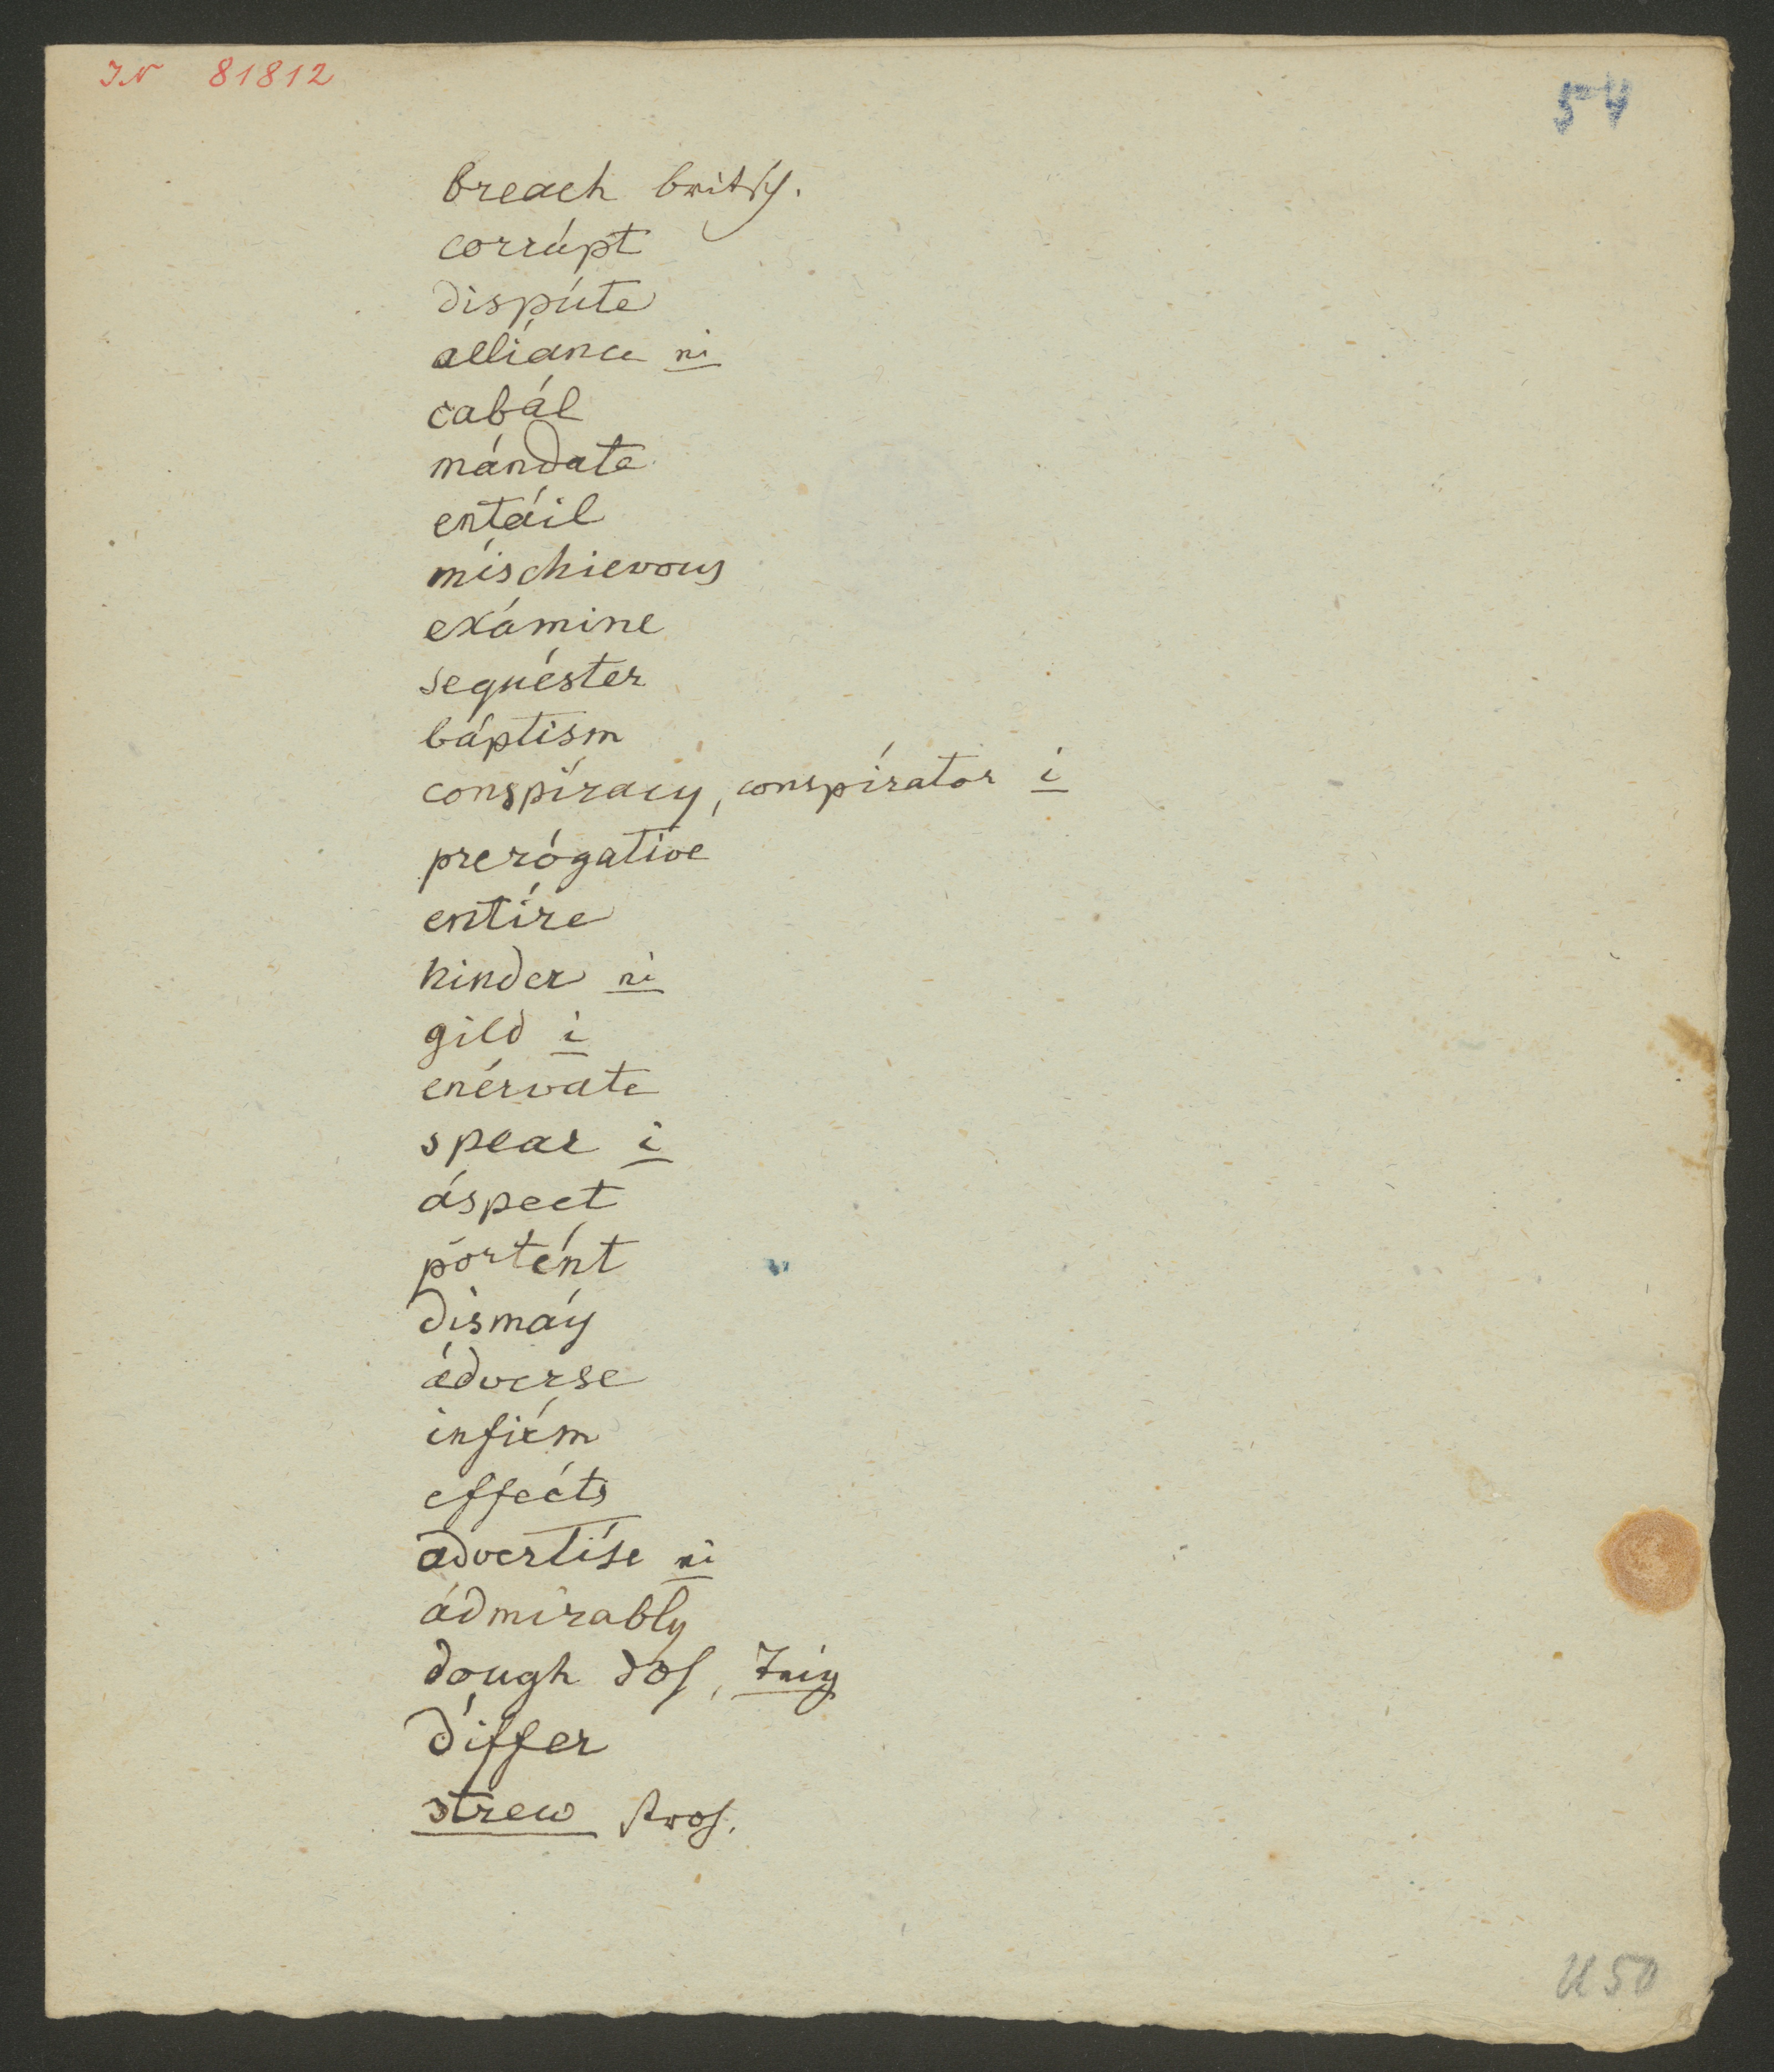 IN 81812
54
breach britsch.
corrúpt
dispúte
allíance ei
cabál
mándate
entáil
míschievous
exámine
sequéster
báptism
conspíracy, conspírator i
prerógative
entíre
hinder ei
gild i
enérvate
spear i
áspect
portént
dismáy
ádverse
infírm
effécts
advertíse ei
ádmirably
dough doh, Teig
díffer
strew stroh.
U 50